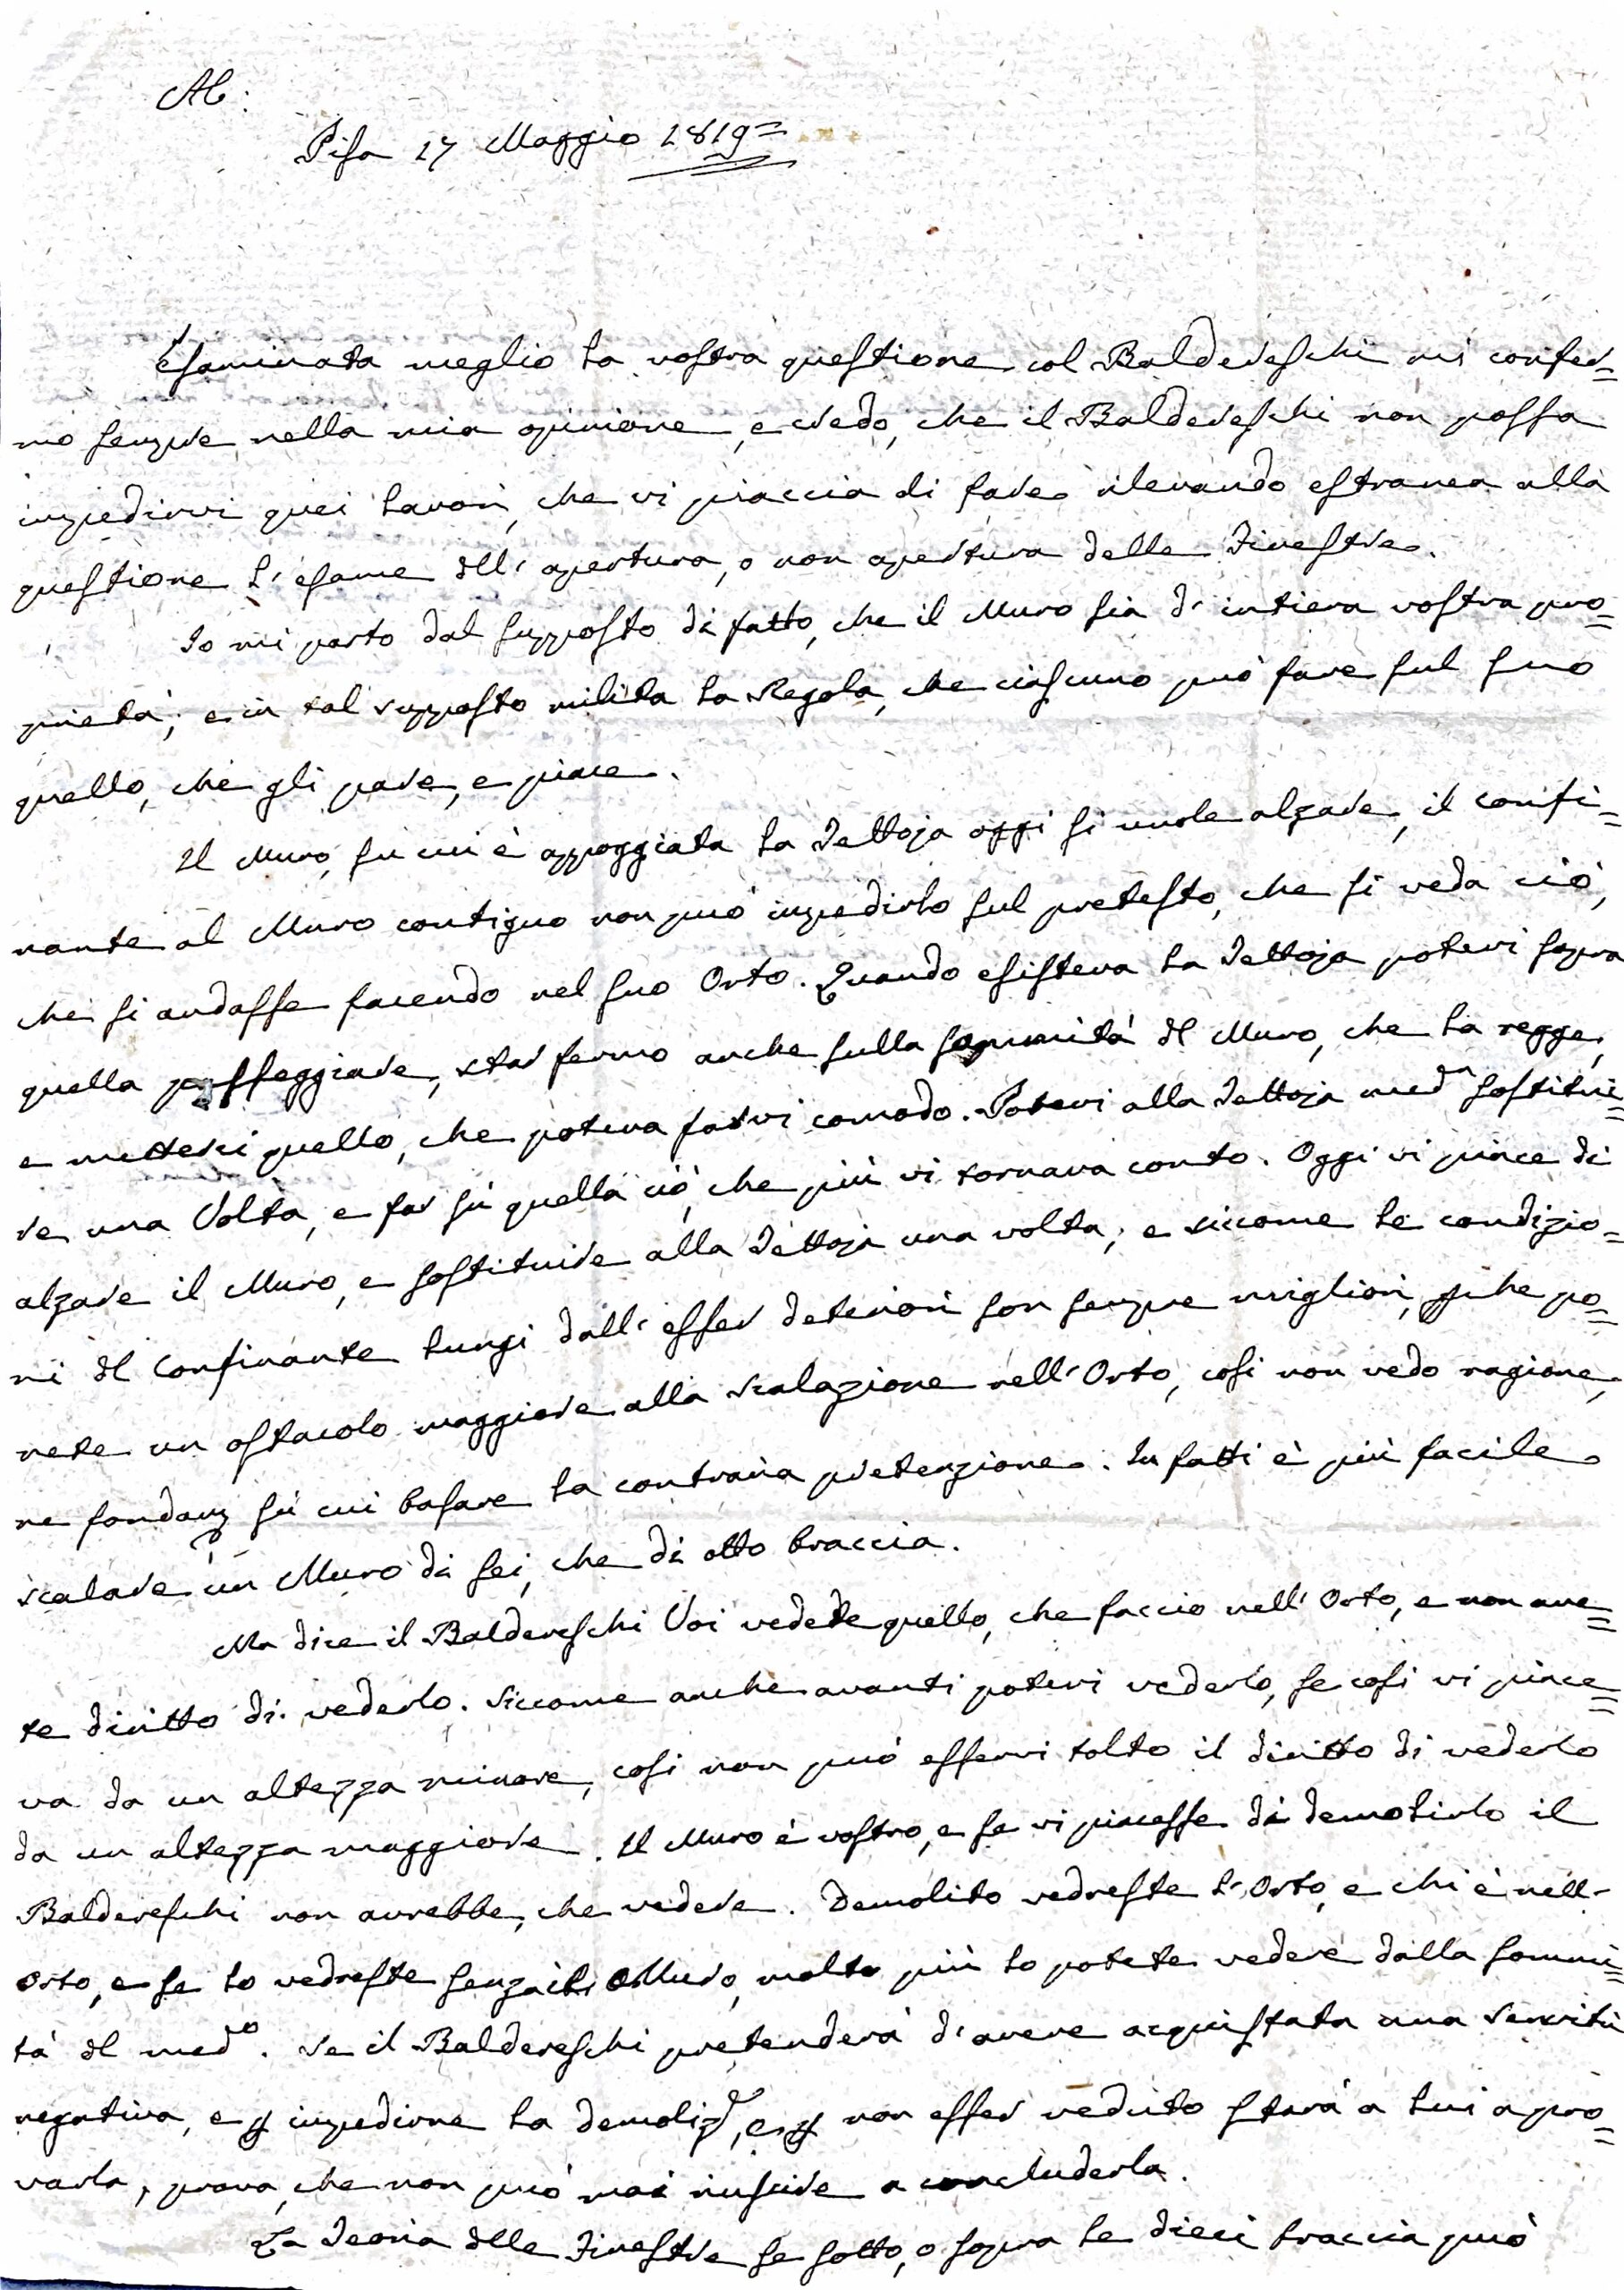 A6:
Pisa 17 Maggio 1819=
Esaminata meglio la vostra questione col Baldereschi mi confer=
mo sempre nella mia opinione, e credo, che il Baldereschi non possa
impedirvi quei lavori, che vi piaccia di fare rilevando estranea alla
questione l'esame dll'apertura, o non apertura delle Finestre.
Io mi parto dal supposto di fatto, che il Muro sia d'intiera vostra pro=
prietà; e in tal supposto milita la Regola, che ciascuno può fare sul suo
quello, che gli pare, e piace.
Il Muro, su cui è appoggiata la Tettoja oggi si vuole alzare, il confi=
nante al Muro contiguo non può impedirlo sul pretesto, che si veda ciò,
che si andasse facendo nel suo Orto. Quando esisteva la Tettoja potevi sopra
quella passeggiare, star fermo anche sulla sommità dl Muro, che la regge,
e metterci quello, che poteva farvi comodo. Potevi alla Tettoja medª sostitui=
re una Volta, e far sù quella ciò, che più vi tornava conto. Oggi vi piace di
alzare il Muro, e sostituire alla Tettoja una volta; e siccome le condizio=
ni dl Confinante lungi dall'esser deteriori son sempre migliori, pche po=
nete un ostacolo maggiore alla scalazione nell'Orto, così non vedo ragione,
ne fondam sù cui basare la contraria pretenzione. In fatti è più facile
scalare un Muro di sei, che di otto braccia.
Ma dice il Baldereschi Voi vedete quello, che faccio nell'Orto, e non ave=
te diritto di vederlo. Siccome anche avanti potevi vederlo, se così vi piace=
va da un altezza minore, così non può esservi tolto il diritto di vederlo
da un altezza maggiore. Il Muro è vostro, e se vi piacesse di demolirlo il
Baldereschi non avrebbe, che vedere. Demolito vedreste l'Orto, e chi è nell'
Orto, e se lo vedreste senza il Muro, molto più lo potete vedere dalla sommi=
tà dl medº. Se il Baldereschi pretenderà d'avere acquistata una Servitù
negativa, e p impedirne la demolizᵉ, e p non esser veduto starà a lui a pro=
varla, prova, che non può mai riuscire a concluderla.
La Teoria dlle Finestre se sotto, o sopra le dieci braccia può